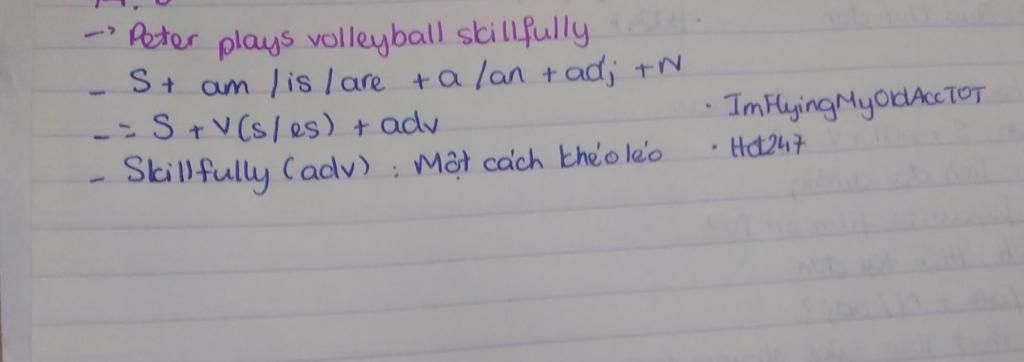 → Peter plays volleyball skillfully
- S + am / is / are + a / an + adj + N
- = S + V(s / es) + adv
- Skillfully (adv) : Một cách khéo léo
· ImFlyingMyOldAccTOT
· Hct247